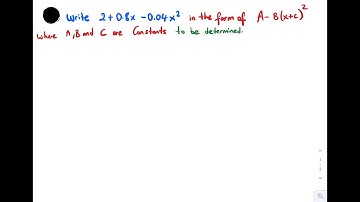 Write 2+0.8x -0.04x² in the form of A-B(x+c)²
where A,B and C are Constants to be determined.